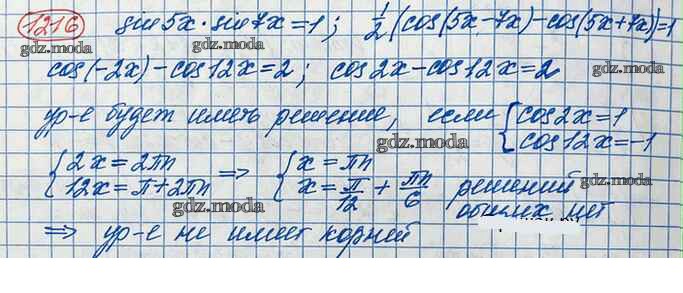 1216 sin5x·sin7x=1; 1/2(cos(5x-7x)-cos(5x+7x))=1
gdz.moda
cos(-2x)-cos12x=2; cos2x-cos12x=2
gdz.moda
ур-е будет иметь решение, если { cos2x=1
gdz.moda cos12x=-1
gdz.moda
{ 2x=2πn => { x=πn
12x=π+2πn x=π/12+πn/6 решений
gdz.moda gdz.moda
gdz.moda общих нет
=> ур-е не имеет корней